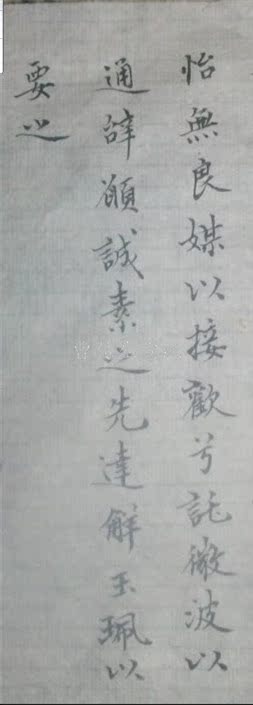 怡無良媒以接歡兮託微波以
通辭願誠素之先達解玉珮以
要之